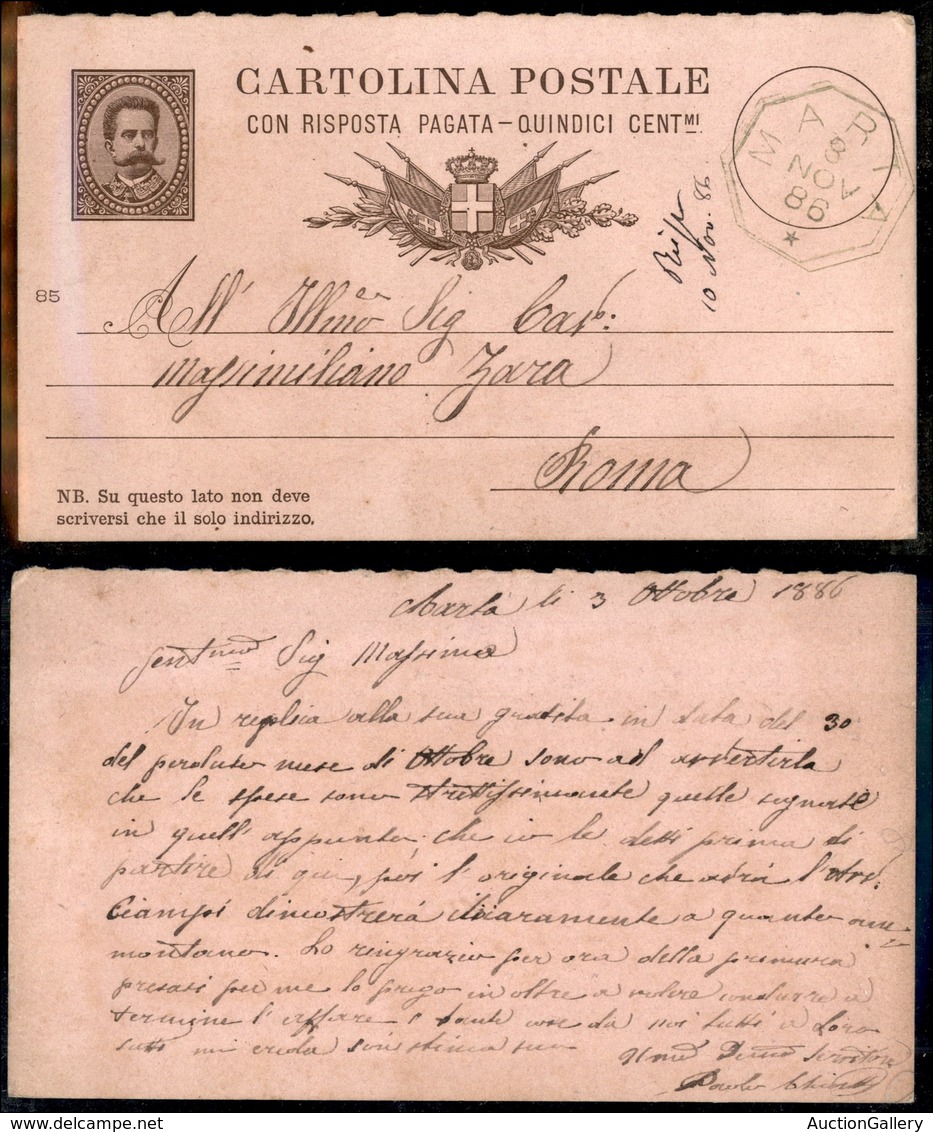 CARTOLINA POSTALE
CON RISPOSTA PAGATA — QUINDICI CENTMI.
MARTA
8
NOV
86
Risp
10 Nov. 86
85
All' Illmo Sig Cav:
Massimiliano Zara
Roma
NB. Su questo lato non deve
scriversi che il solo indirizzo.
Marta li 3 Ottobre 1886
Gentmo Sig Massimo
In replica alla sua gradita in data del 30
del perduto mese di Ottobre sono ad avvertirla
che le spese sono strettissimamente quelle segnate
in quell' appunto che io le detti prima di
partire di qui, poi l' originale che avrà l'
Ciampi dimostrerà chiaramente a quanto am
montano. La ringrazio per ora della premura
presasi per me la prego in oltre a volere condurre a
termine l' affare e tante cose da noi tutti a Loro
tutti mi creda con stima suo
Servitore
Paolo
AuctionGallery